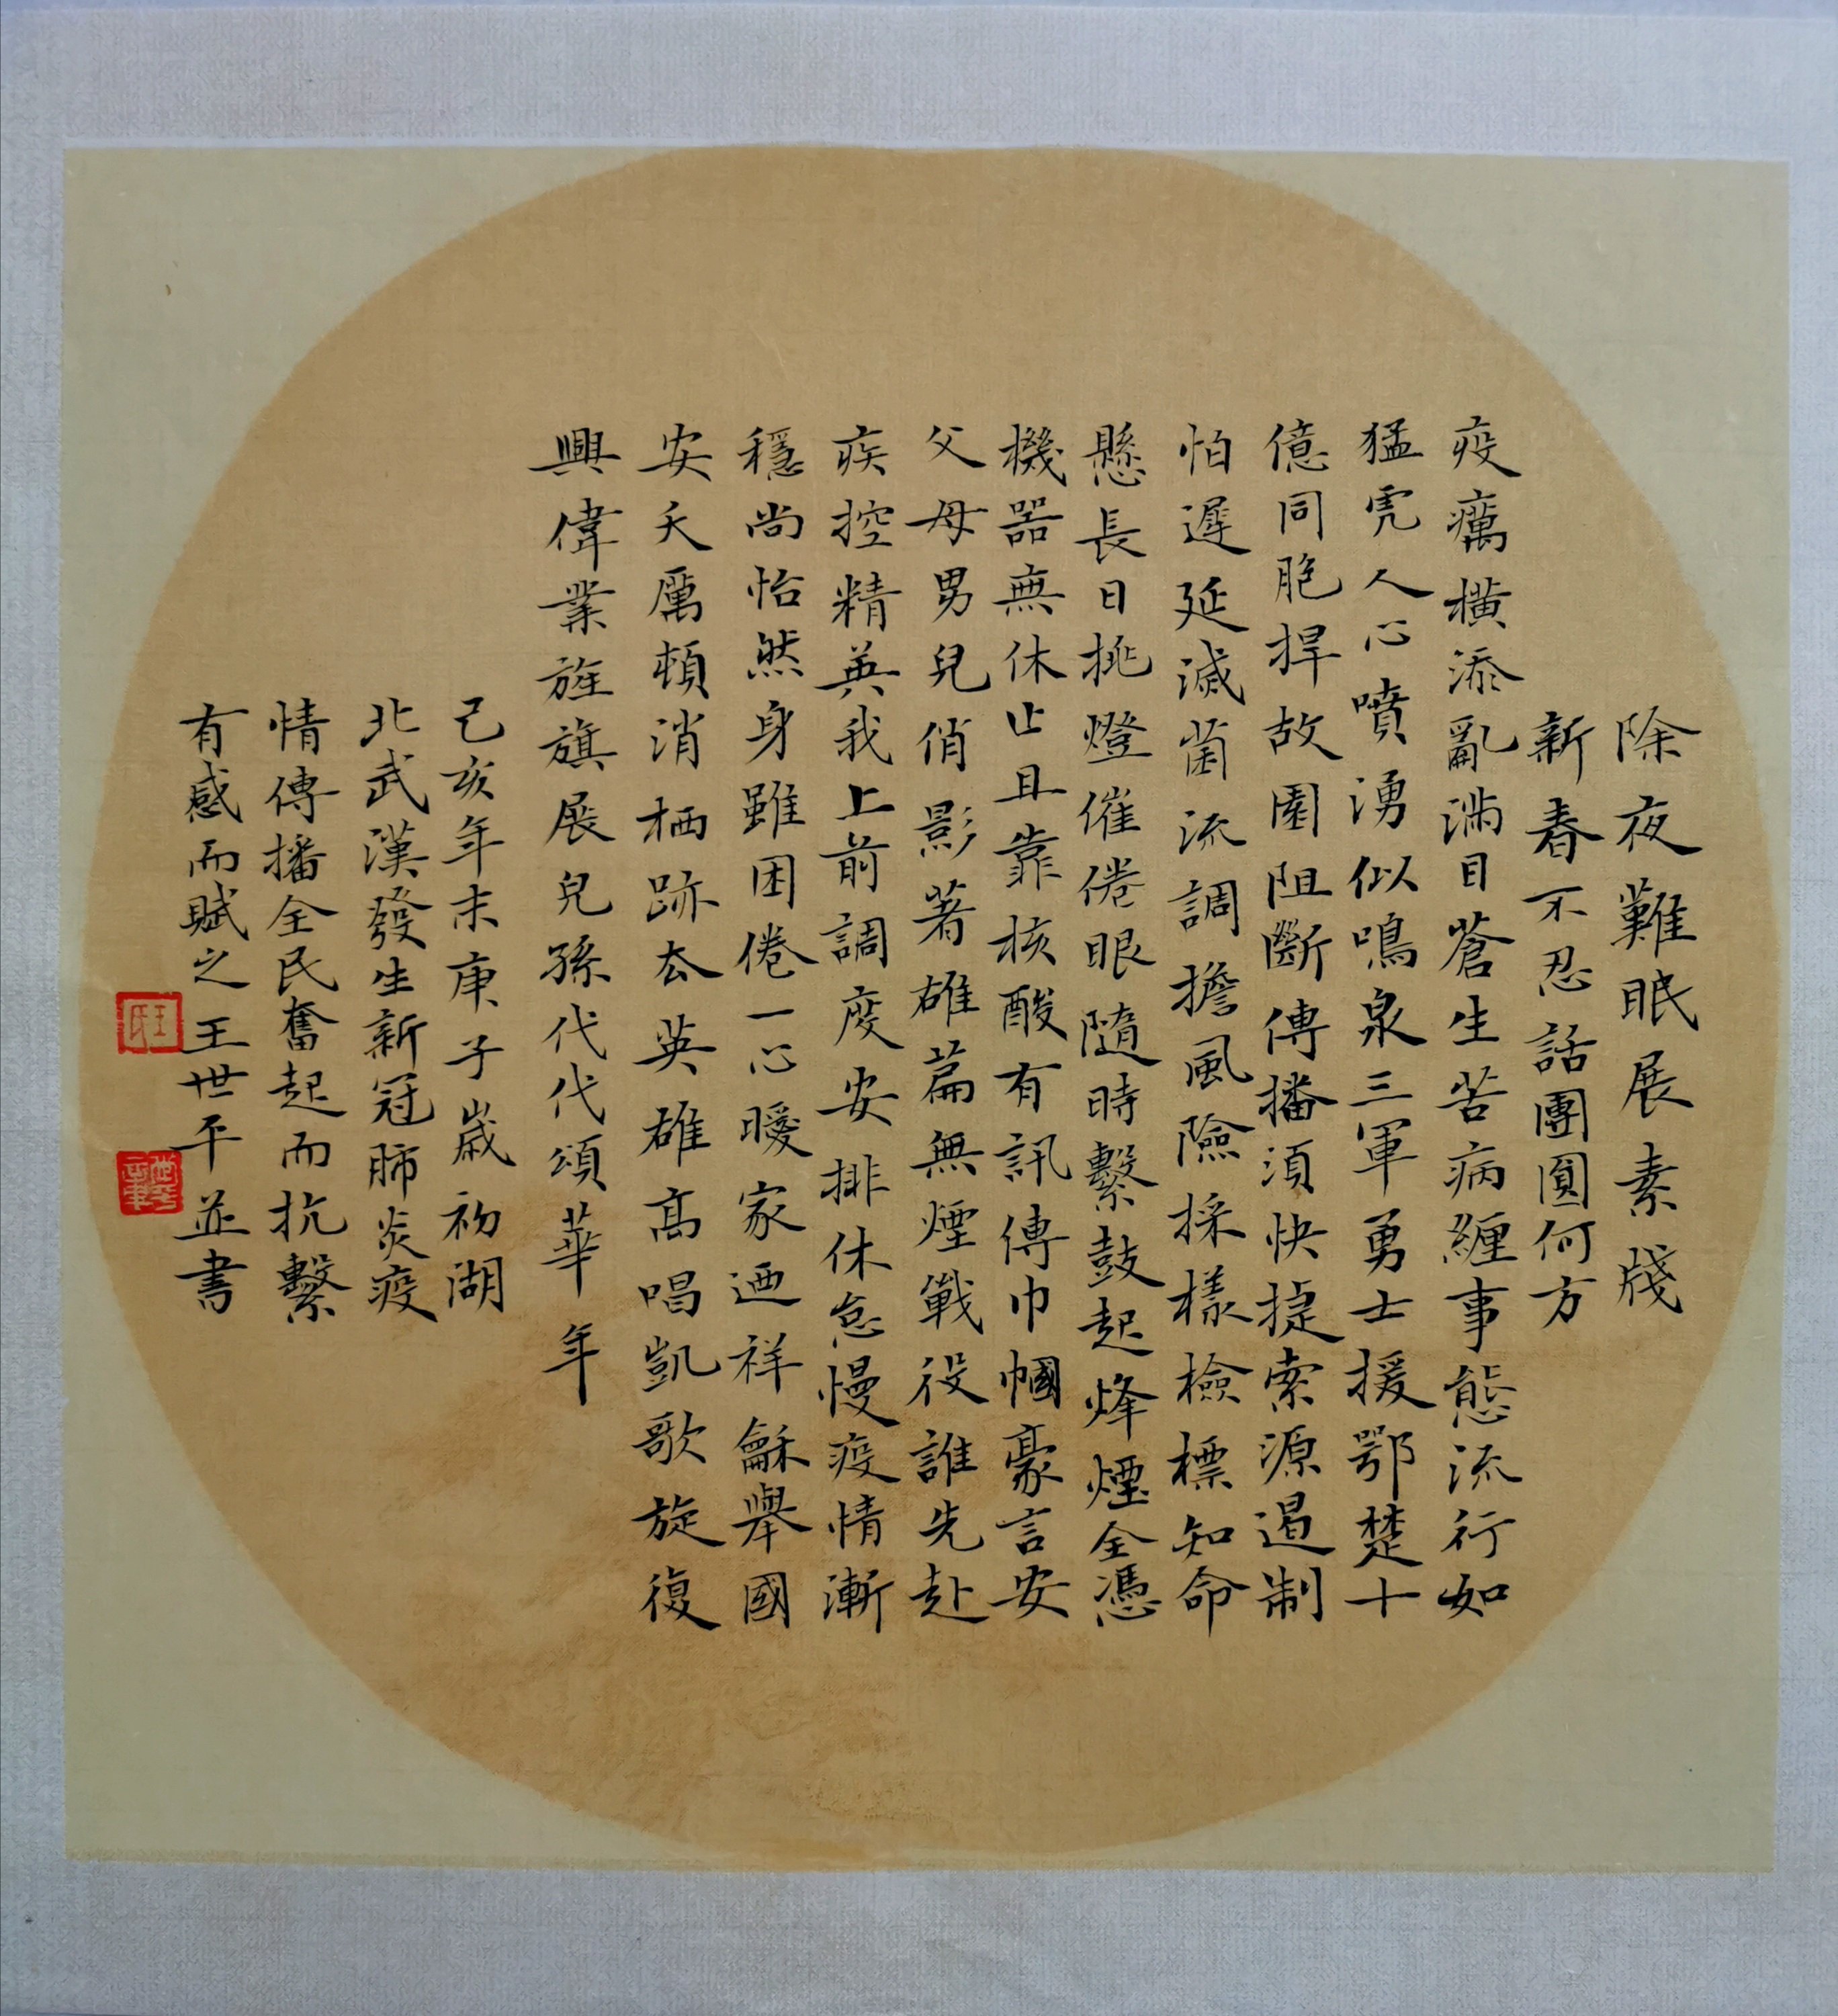 除夜難眠展素牋
新春不忍話團圓何方
疫癘横添亂滿目蒼生苦病纏事態流行如
猛虎人心噴湧似鳴泉三軍勇士援鄂楚十
億同胞捍故園阻斷傳播須快捷索源遏制
怕遲延滅菌流調擔風險採樣檢標知命
懸長日挑燈催倦眼隨時繫鼓起烽煙全憑
機器無休止且靠核酸有訊傳巾幗豪言安
父母男兒俏影著雄篇無煙戰役誰先赴
疾控精英我上前調度安排休怠慢疫情漸
穩尚怡然身雖困倦一心曖家迺祥龢舉國
安夭厲頓消栖跡厺英雄高唱凱歌旋復
興偉業旌旗展兒孫代代頌華年
己亥年末庚子歲初湖
北武漢發生新冠肺炎疫
情傳播全民奮起而抗繫
有感而賦之王世平並書